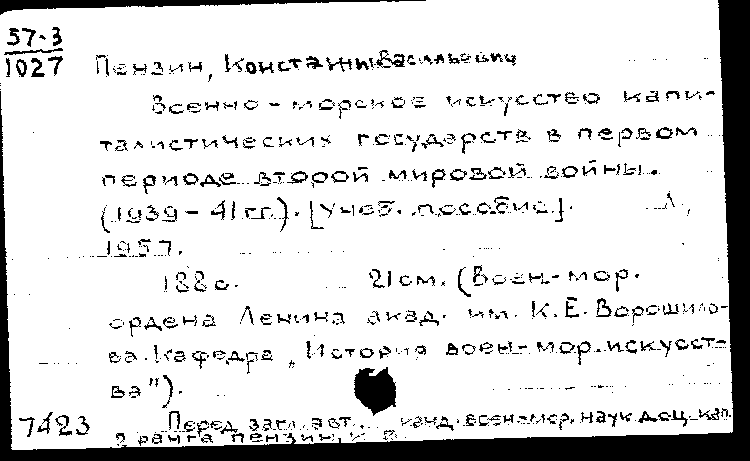 57-3
1027
Пензин, Константин Васильевич
Военно-морское искусство капи-
талистических государств в первом
периоде второй мировой войны.
(1939-41 гг.). [Учеб. пособие]. Л.,
1957.
188 с. 21 см. (Воен-мор.
ордена Ленина акад. им. К.Е. Ворошило-
ва. Кафедра "История воен-мор. искусст-
ва").
7423
Перед загл. авт. канд. воен-мор. наук доц. кап.
2 ранга Пензин, К. В.